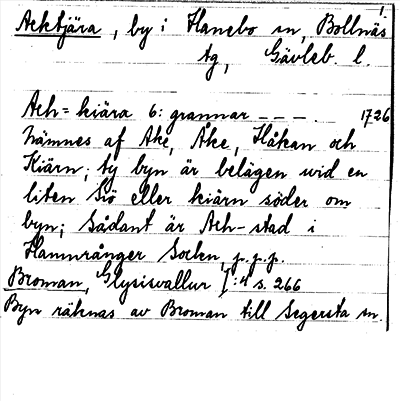 1.
Acktjära, by i Hanebo sn, Bollnäs
tg, Gävleb. l.
Ach=kiära 6: grannar – – –. 1726
nämnes af Ake, Åke, Håkan och
Kiärn; ty byn är belägen wid en
liten Siö eller kiärn söder om
byn; Sådant är Ach-stad i
Hamrånger Socken p.p.p.
Broman, Glysisvallur I:4 s. 266
Byn räknas av Broman till Segersta sn.